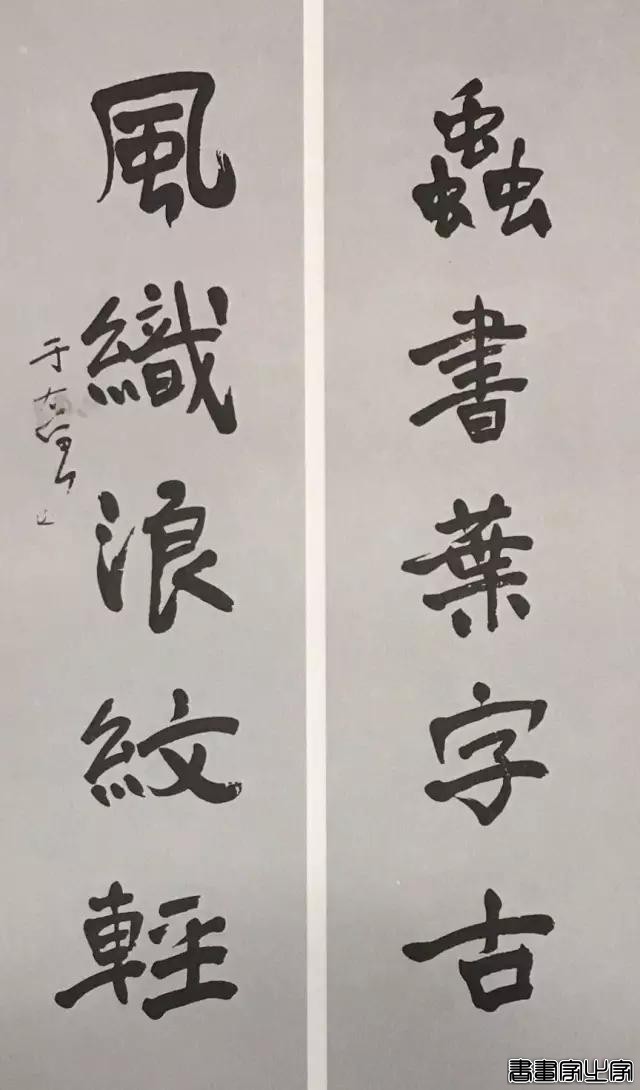 蟲書葉字古
風織浪紋輕
于右任
書畫家之家